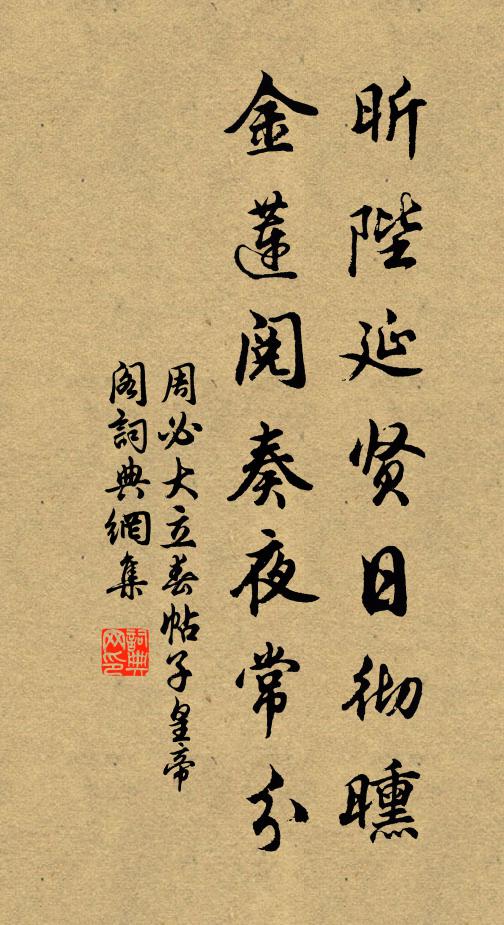 昕陛延贤日彻曛
金蓮閲奏夜常分
周必大立春帖子皇帝
阁詞典網集
詞典
网印